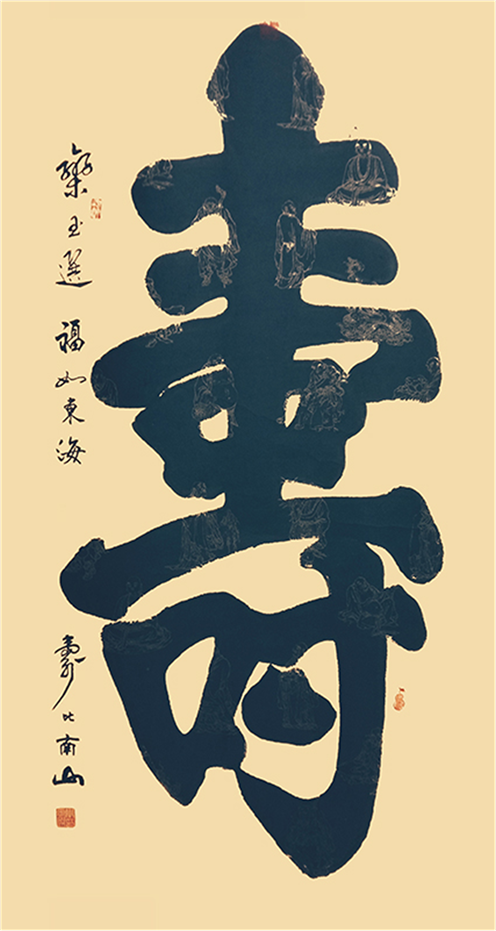 壽
欒玉選 福如東海
壽比南山